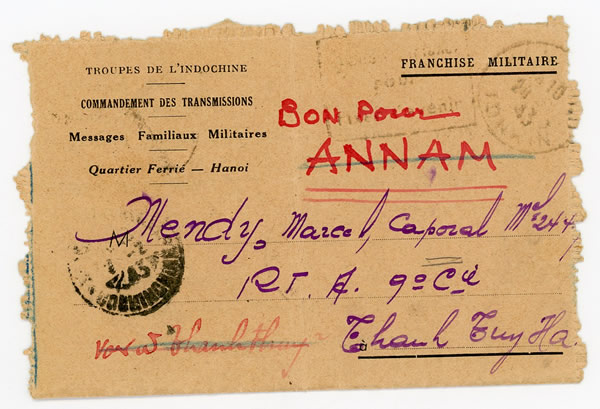 TROUPES DE L'INDOCHINE
COMMANDEMENT DES TRANSMISSIONS
Messages Familiaux Militaires
Quartier Ferrié — Hanoi
FRANCHISE MILITAIRE
BON POUR
ANNAM
Mendy, Marcel, Caporal Mle 244
R.T.A. 9e Cie
à Thanh Tuy Ha.